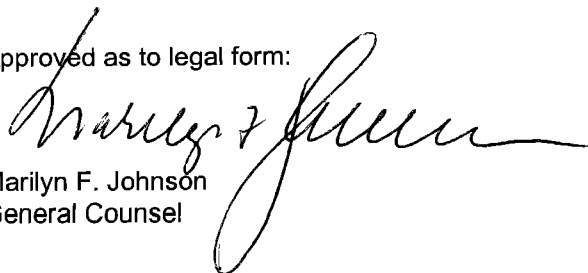 pproved as to legal form:
Marilyn F. Johnson
Marilyn F. Johnson
General Counsel